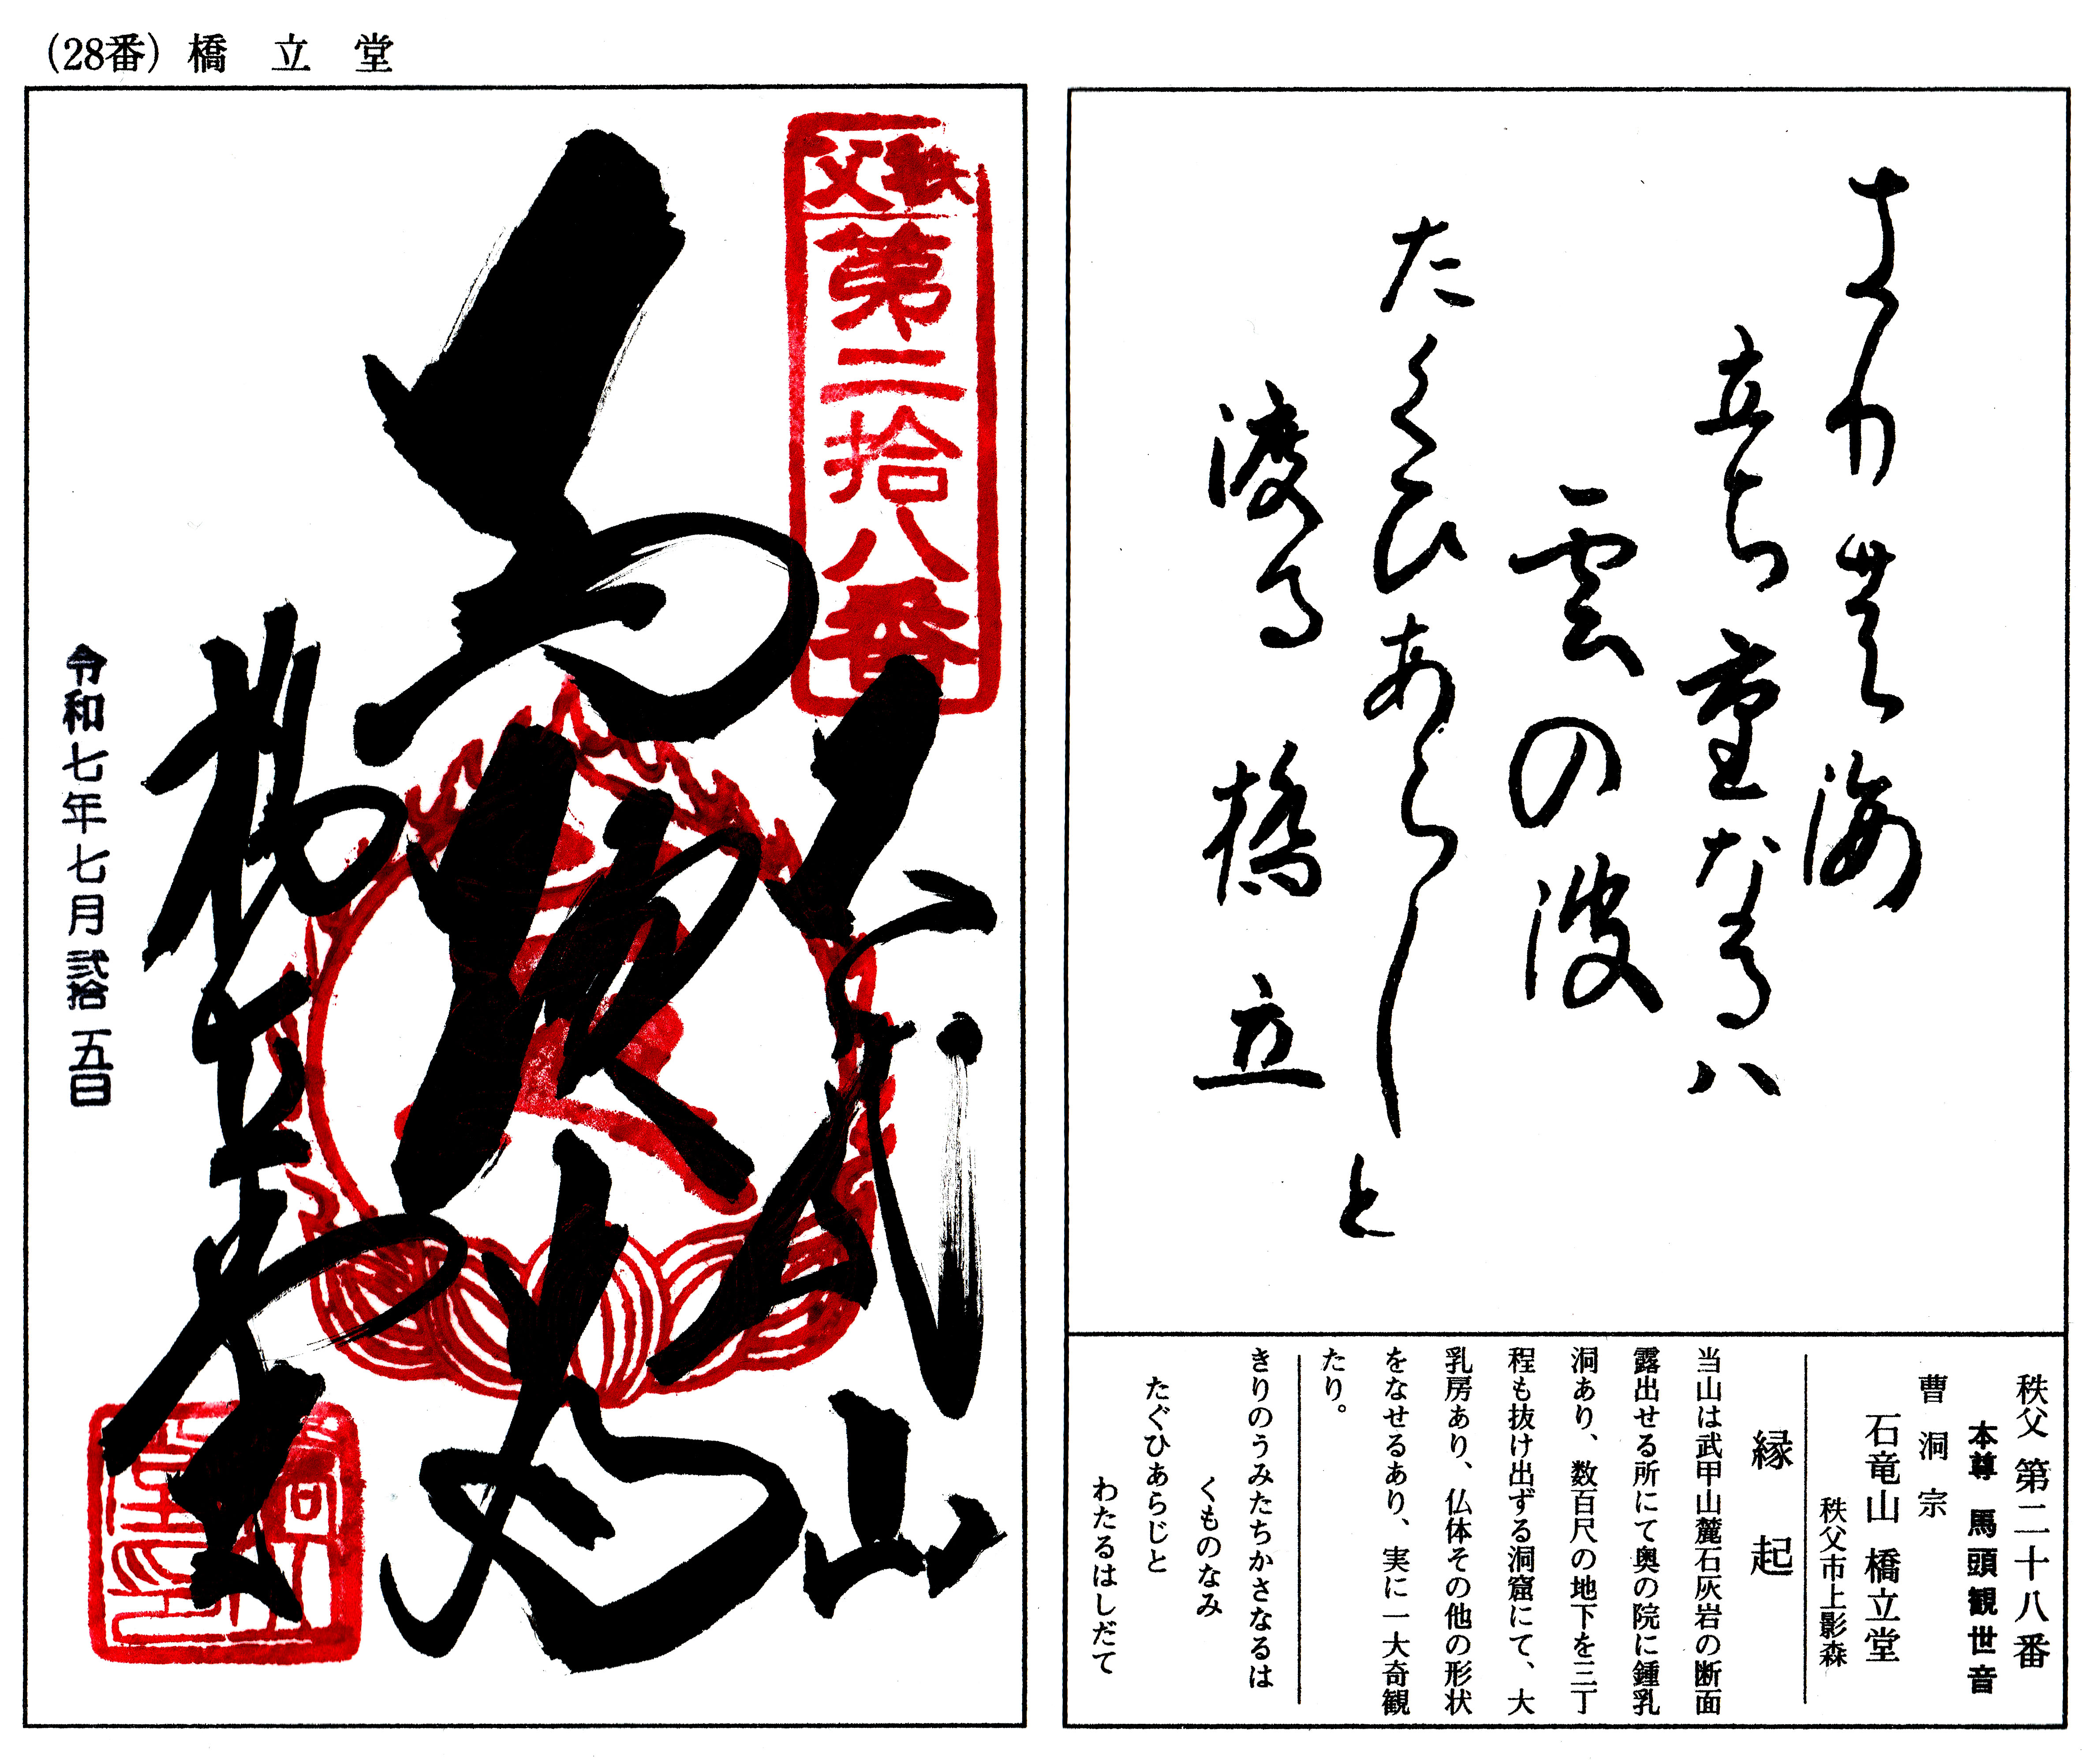 (28番) 橋立堂
きりの海
立ち重なるハ
雲の波
たくひあらしと
渡る橋立
秩父 第二十八番
本尊 馬頭観世音
曹洞宗
石竜山 橋立堂
秩父市上影森
縁起
当山は武甲山麓石灰岩の断面
露出せる所にて奥の院に鍾乳
洞あり、数百尺の地下を三丁
程も抜け出ずる洞窟にて、大
乳房あり、仏体その他の形状
をなせるあり、実に一大奇観
たり。
きりのうみたちかさなるは
くものなみ
たぐひあらじと
わたるはしだて
秩父
第二拾八番
石龍山
橋立堂
令和七年七月弐拾五日